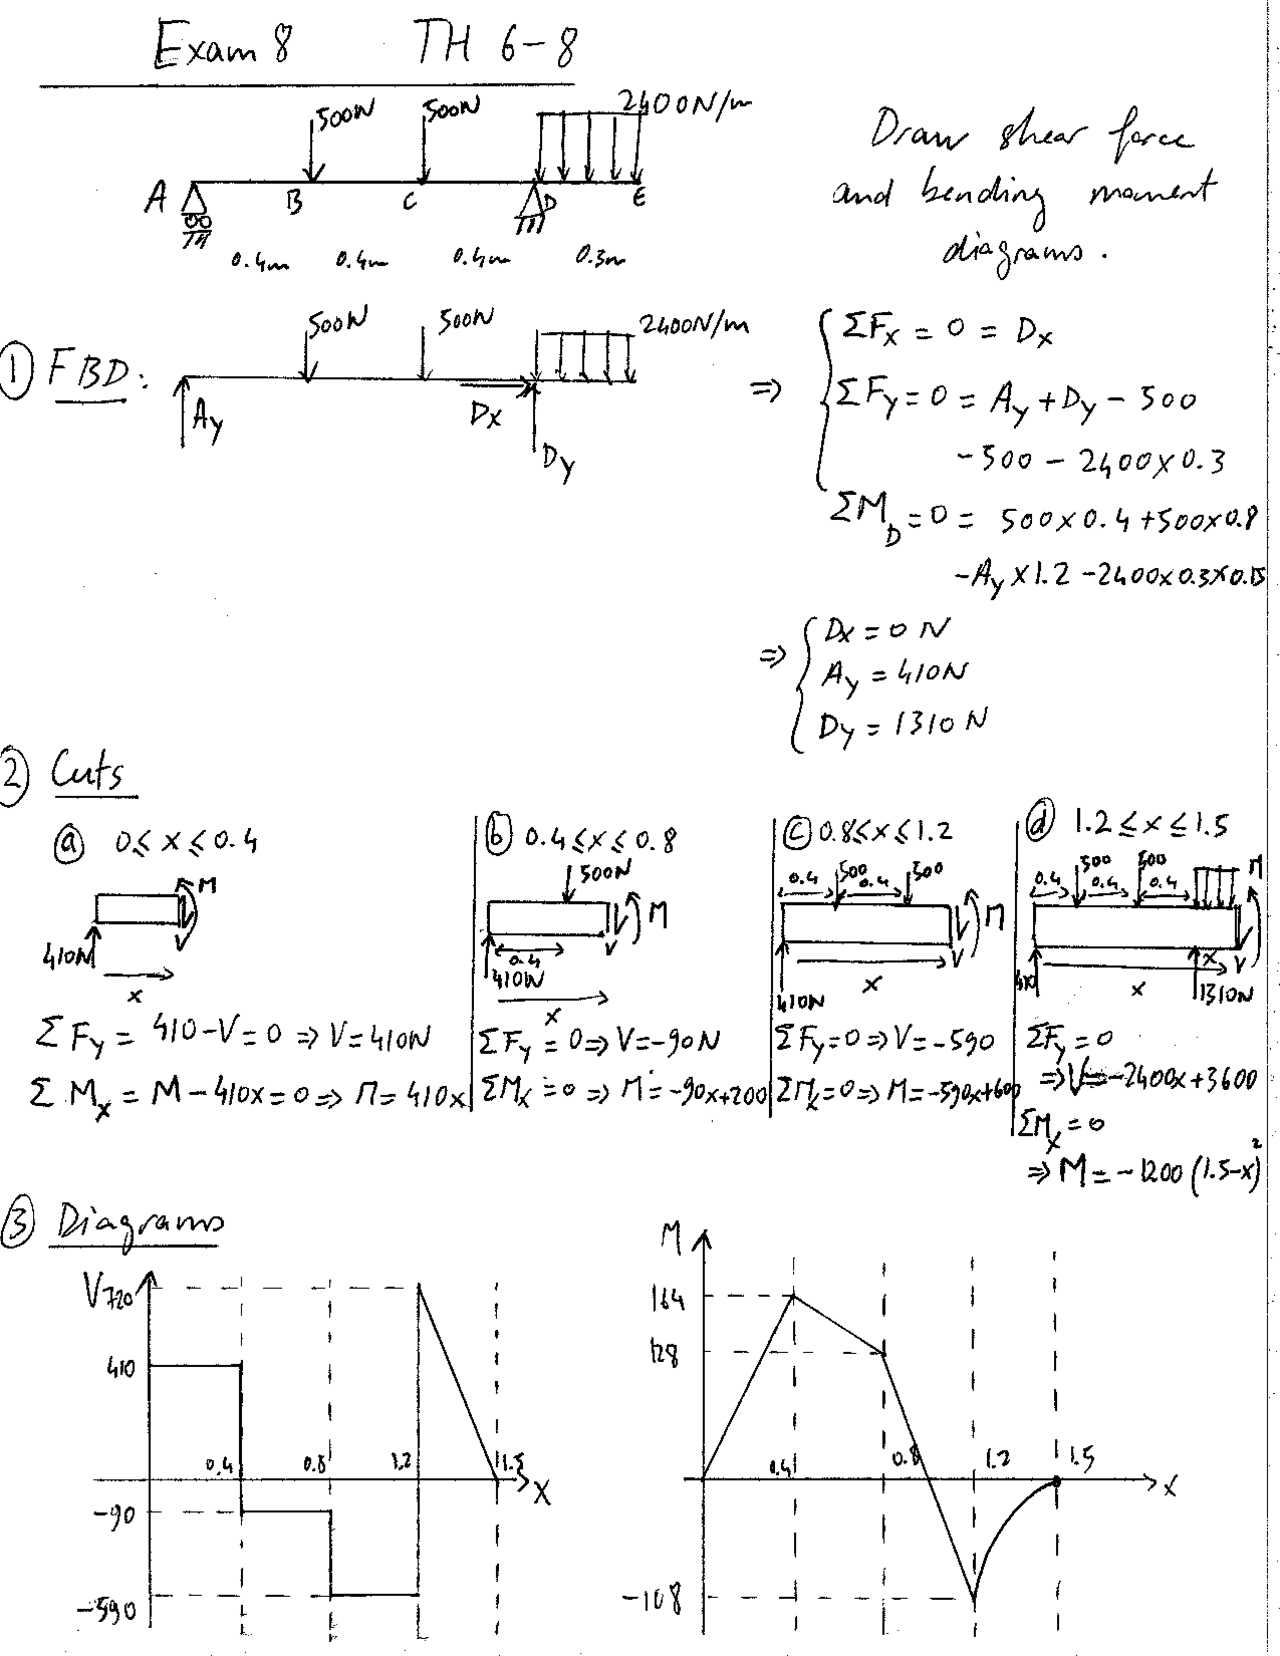 Exam 8 TH 6-8
500N 500N 2400N/m
Draw shear force
and bending moment
diagrams.
A B C D E
0.4m 0.4m 0.4m 0.3m
① FBD:
500N 500N 2400N/m
Ay Dx Dy
⇒ { ΣFx = 0 = Dx
ΣFy = 0 = Ay + Dy - 500
- 500 - 2400 x 0.3
ΣM_D = 0 = 500 x 0.4 + 500 x 0.8
- Ay x 1.2 - 2400 x 0.3 x 0.15
⇒ { Dx = 0 N
Ay = 410N
Dy = 1310 N
② Cuts
ⓐ 0 ≤ x ≤ 0.4
M
V
410N
x
ΣFy = 410 - V = 0 ⇒ V = 410N
ΣMx = M - 410x = 0 ⇒ M = 410x
ⓑ 0.4 ≤ x ≤ 0.8
500N
M
V
0.4
410N
x
ΣFy = 0 ⇒ V = -90N
ΣMx = 0 ⇒ M = -90x+200
ⓒ 0.8 ≤ x ≤ 1.2
0.4 500 0.4 500
M
V
410N
x
ΣFy = 0 ⇒ V = -590
ΣMx = 0 ⇒ M = -590x+600
ⓓ 1.2 ≤ x ≤ 1.5
0.4 500 0.4 500 0.4
M
V
x
410 x 1310N
ΣFy = 0
⇒ V = -2400x + 3600
ΣMx = 0
⇒ M = -1200 (1.5-x)²
③ Diagrams
V
720
410
0.4 0.8 1.2 1.5
X
-90
-590
M
164
128
0.4 0.8 1.2 1.5
X
-108